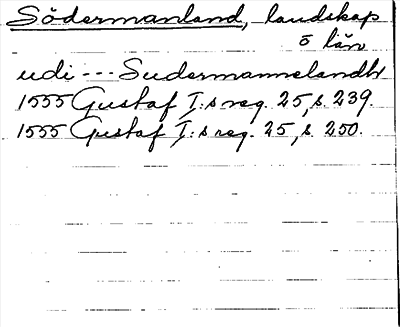 Södermanland, landskap
o län
udi --- Sudermannelandh
1555 Gustaf I:s reg. 25, s. 239.
1555 Gustaf I:s reg. 25, s. 250.